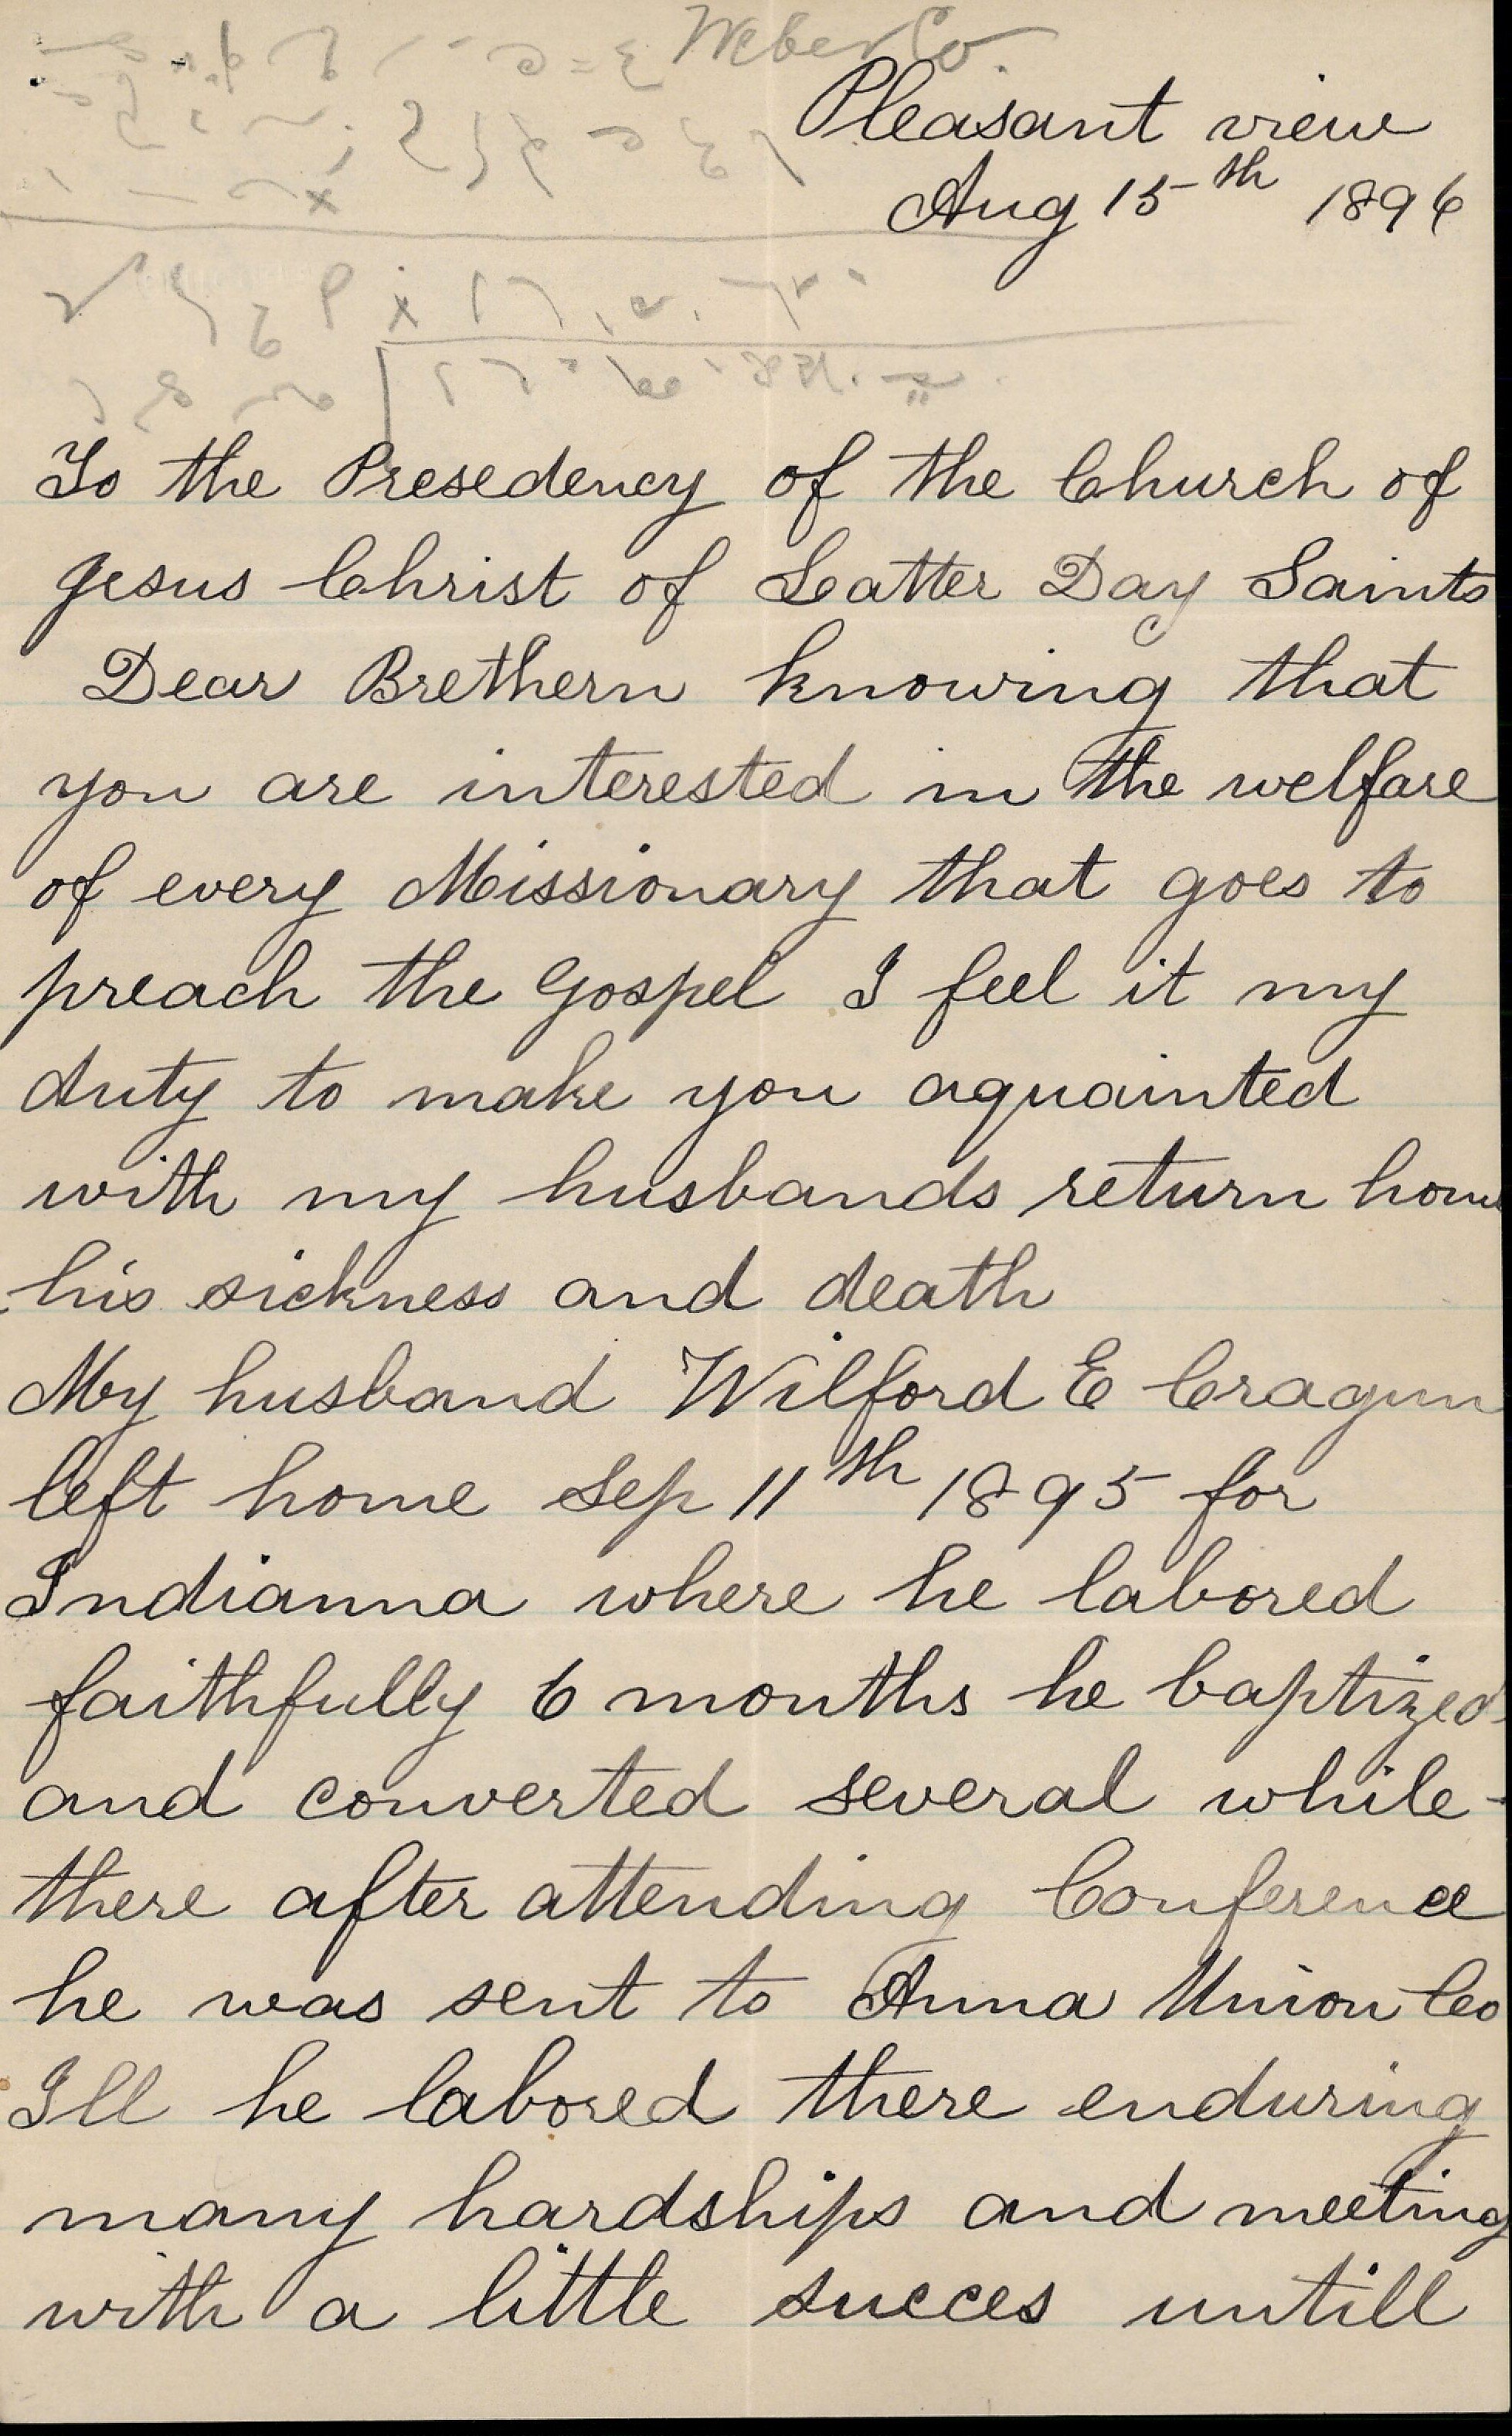 Weber Co.
Pleasant view
Aug 15th 1896
To the Presedency of the Church of
Jesus Christ of Leatter Day Saints
Dear Brethern knowing that
you are interested in the welfare
of every Missionary that goes to
preach the Gospel I feel it my
duty to make you aquainted
with my husbands return home
his sickness and death
My husband Wilford E Cragun
left home Sep 11th 1895 for
Indianna where he labored
faithfully 6 months he baptized
and converted several while
there after attending Conference
he was sent to Anna Union Co
Ill he labored there enduring
many hardships and meeting
with a little succes untill